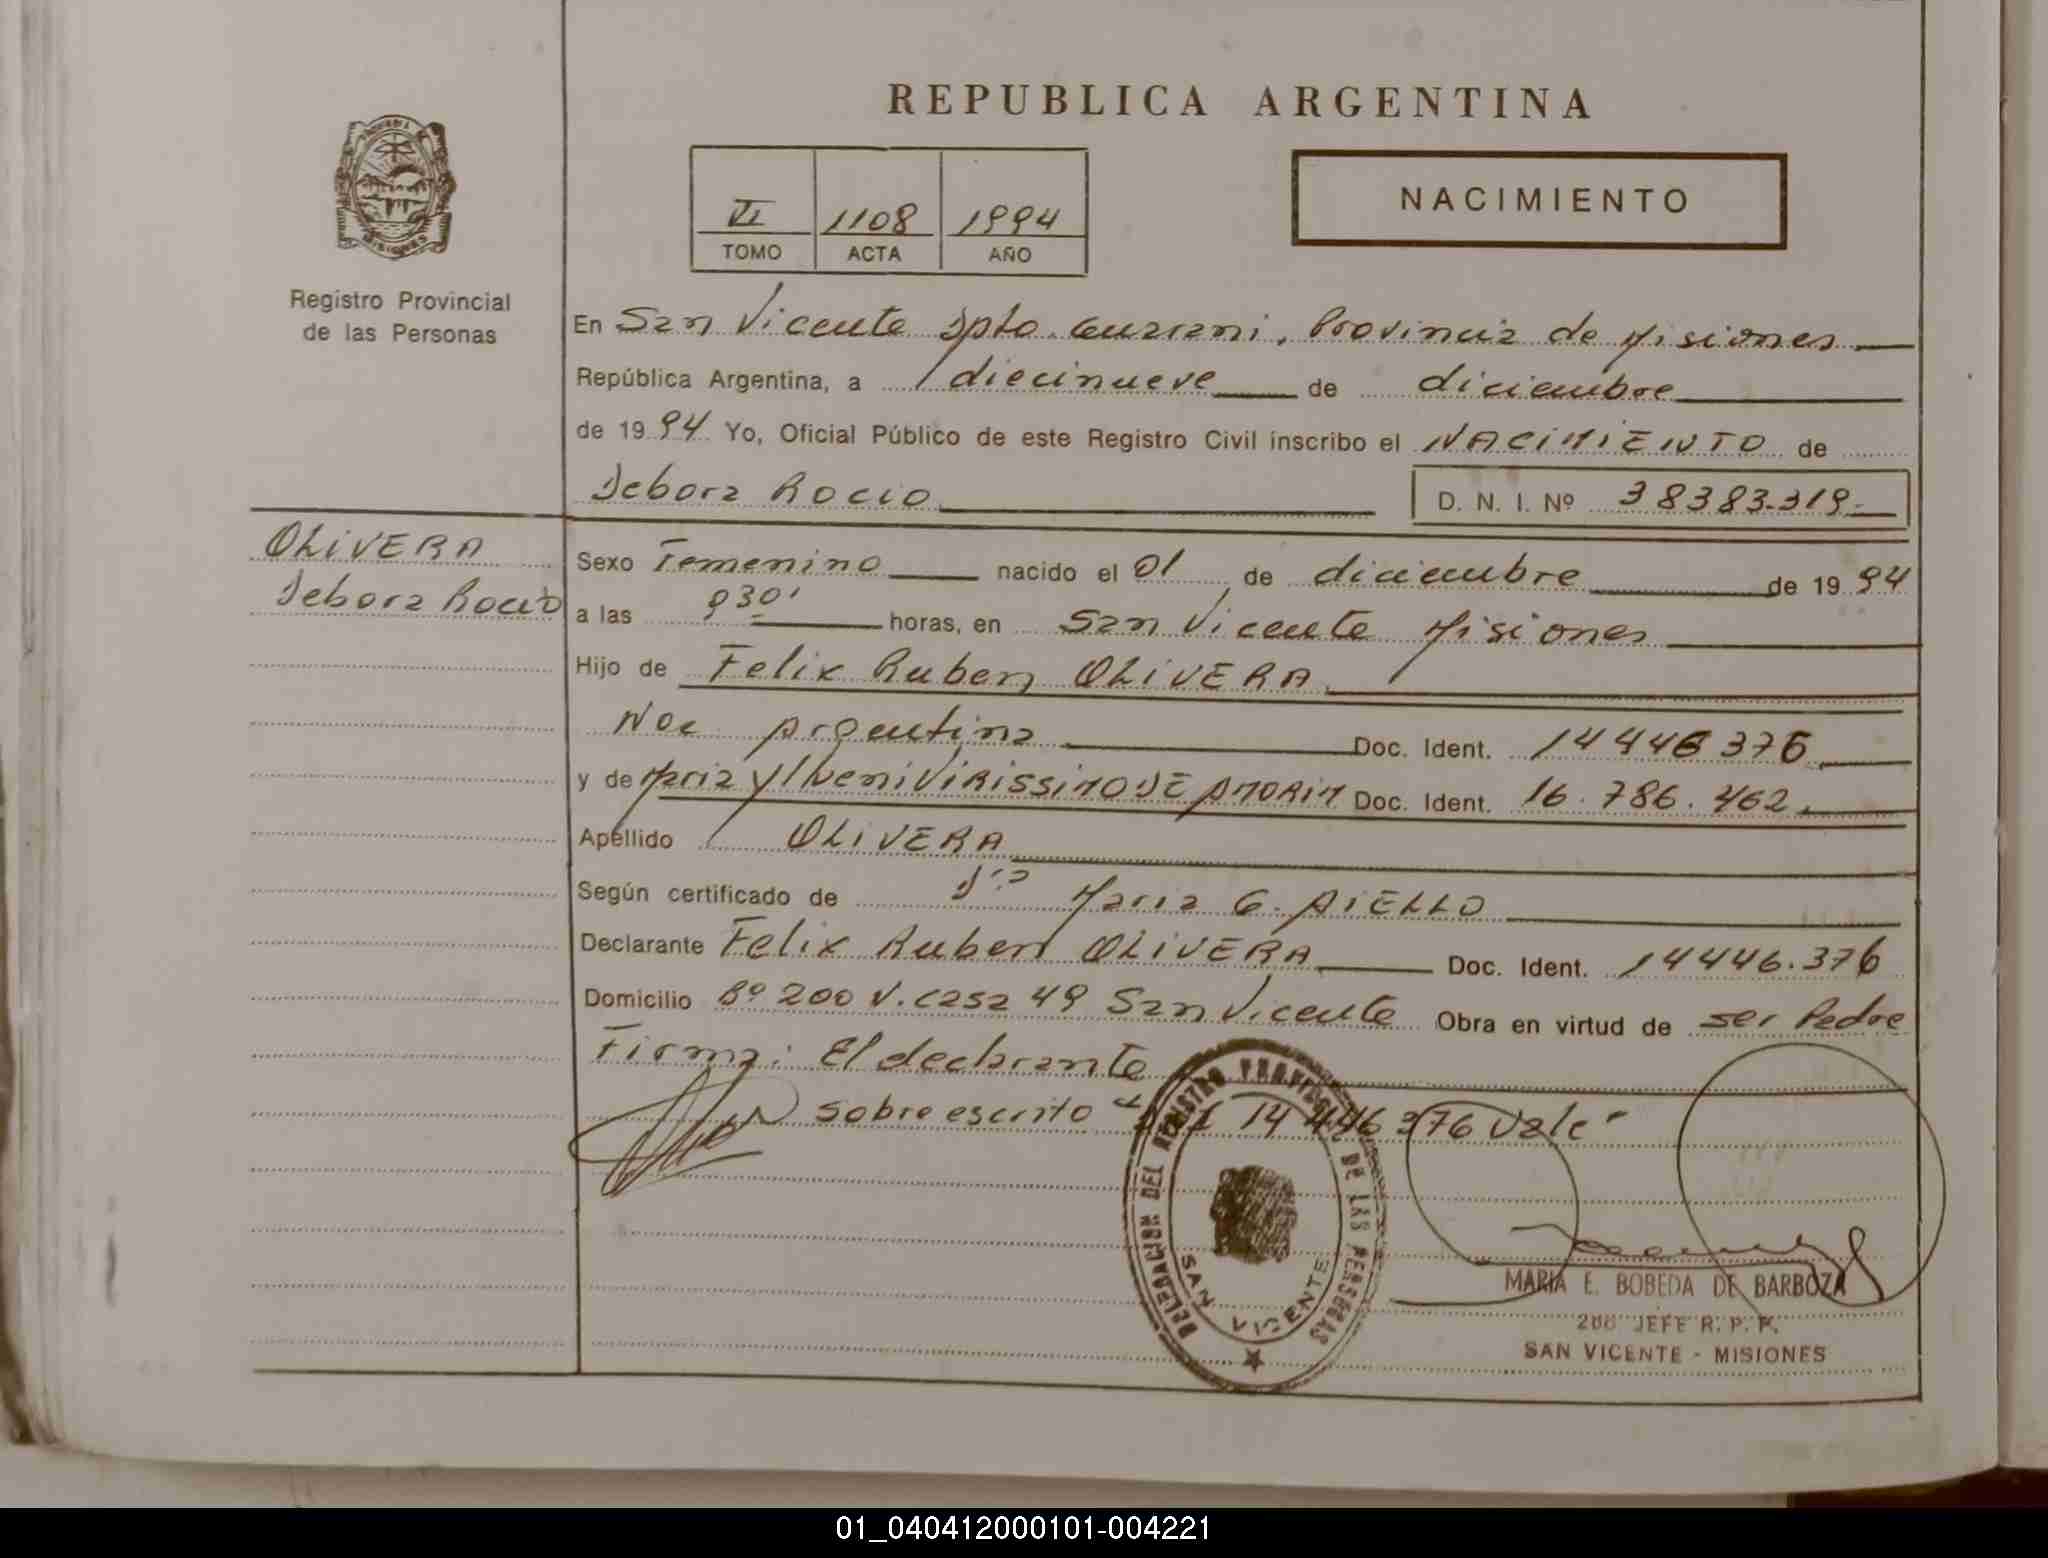 REPUBLICA ARGENTINA
NACIMIENTO
VI 1108 1994
TOMO ACTA AÑO
PROVINCIA DE MISIONES
Registro Provincial
de las Personas
En San Vicente Dpto. Guarani, Provincia de Misiones
República Argentina, a diecinueve de diciembre
de 1994 Yo, Oficial Público de este Registro Civil inscribo el NACIMIENTO de
Debora Rocio
D. N. I. Nº 38383.319.-
OLIVERA
Debora Rocio
Sexo Femenino nacido el 01 de diciembre de 1994
a las 930' horas, en San Vicente Misiones
Hijo de Felix Ruben OLIVERA
Nac Argentina Doc. Ident. 14446376
y de Maria VIRISSIMO DE AMORIM Doc. Ident. 16.786.462.
Apellido OLIVERA
Según certificado de Dra Maria G. AIELLO
Declarante Felix Ruben OLIVERA Doc. Ident. 14446.376
Domicilio Bº 200 V. casa 49 San Vicente Obra en virtud de ser Padre
Firma: El declarante
sobre escrito 14 446 376 Vale"
DELEGACION DEL REGISTRO PROVINCIAL DE LAS PERSONAS
SAN VICENTE
MARIA E. BOBEDA DE BARBOZA
JEFE R. P. P.
SAN VICENTE - MISIONES
01_040412000101-004221